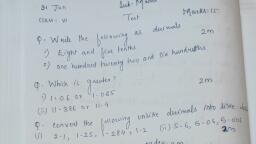 31 Jan Sub- Maths
Class- VI Test Marks:15
Q. Write the following as decimals 2m
1) Eight and five tenths
2) one hundred twenty two and six hundredths
Q. Which is greater? 2m
(i) 1.06 or 1.065
(ii) 11.386 or 11.4
Q. Convert the following unlike decimals into like
(i) 3.1, 1.25, 1.284, 1.2 (ii) 5.6, 5.04, 2m